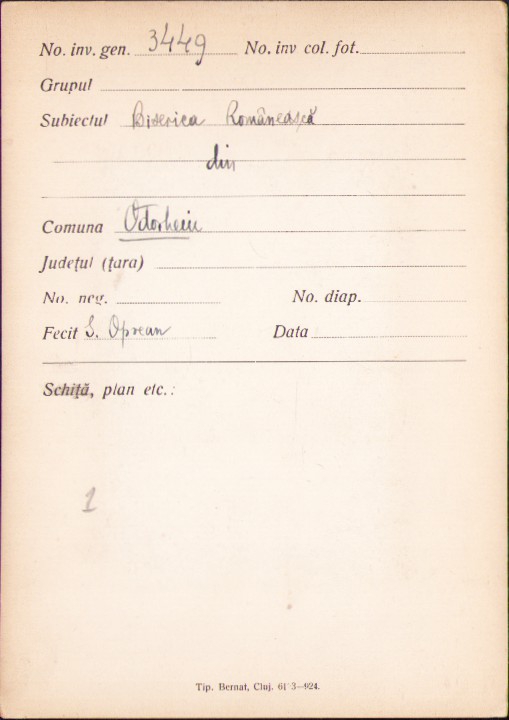 No. inv. gen. 3449 No. inv col. fot.
Grupul
Subiectul Biserica Românească
din
Comuna Odorheiu
Județul (țara)
No. neg. No. diap.
Fecit S. Oprean Data
Schiță, plan etc.:
1
Tip. Bernat, Cluj. 61 3—924.